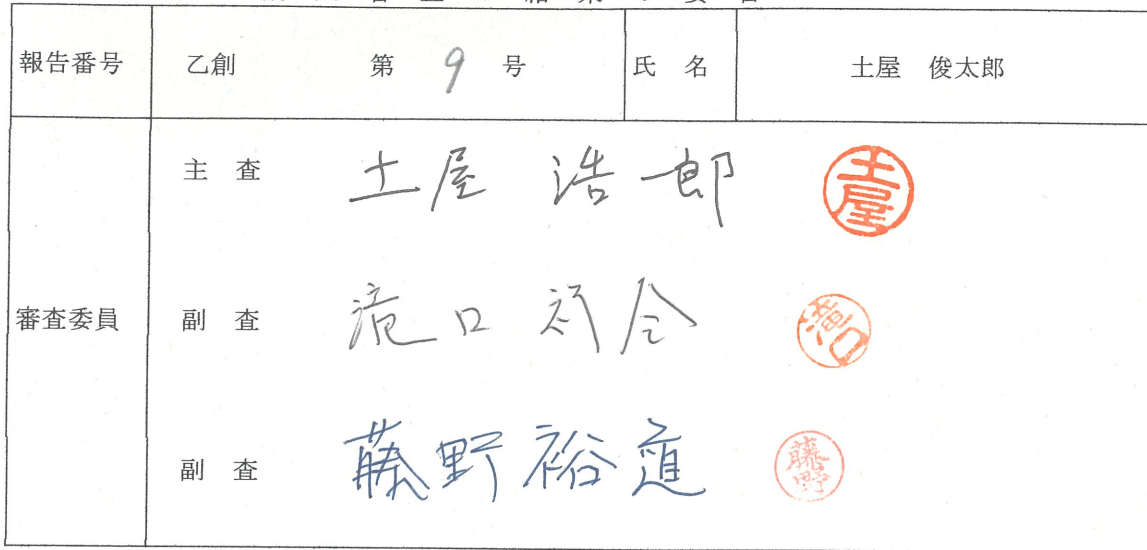 報告番号 乙創 第 9 号 氏 名 土屋 俊太郎
審査委員
主 査 土屋 浩一郎 土屋
副 査 滝口 祥令 滝口
副 査 藤野 裕道 藤野